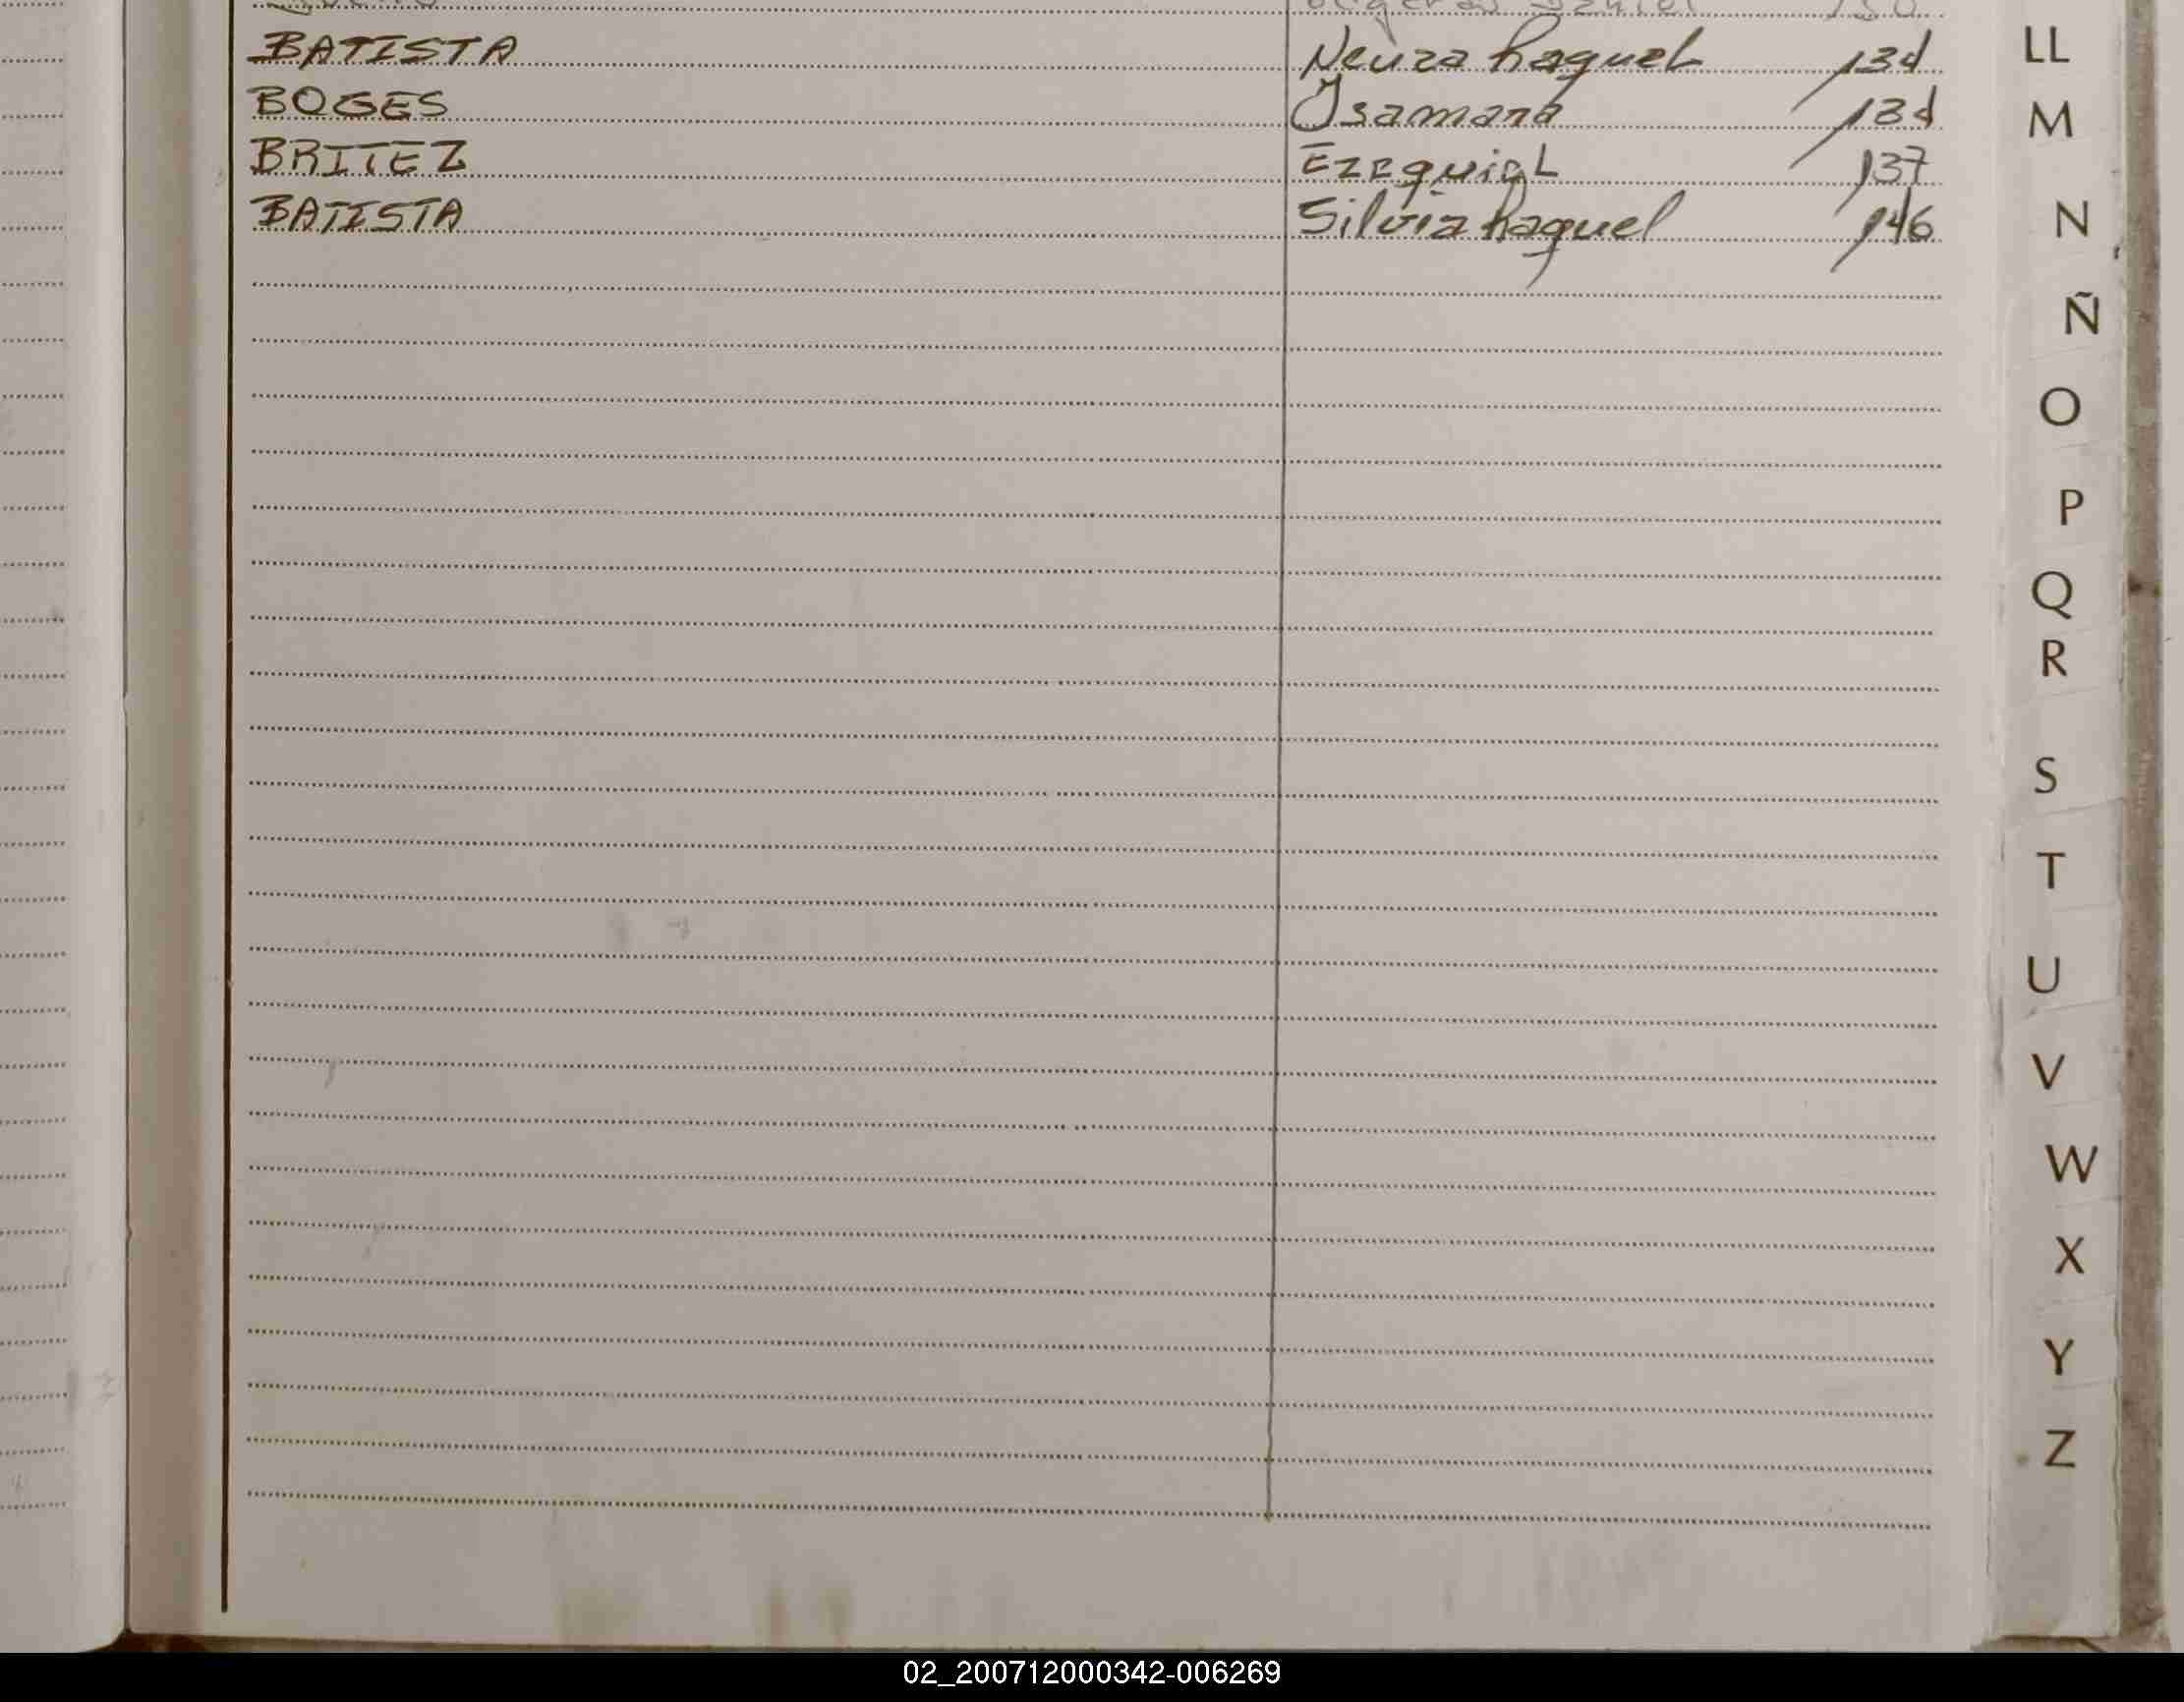 BATISTA Neuza Raquel 131
BOGES Isamara 131
BRITEZ Ezequiel 137
BATISTA Silvia Raquel 146
LL
M
N
Ñ
O
P
Q
R
S
T
U
V
W
X
Y
Z
02_200712000342-006269